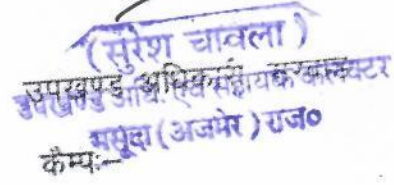 (सुरेश चावला)
उपखण्ड अधिकारी
उपखण्ड अधि. एवं सहायक कलक्टर
मसूदा (अजमेर) राज०
कैम्पः—